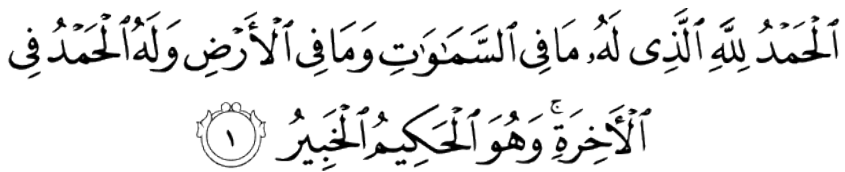 ٱلْحَمْدُ لِلَّهِ ٱلَّذِى لَهُۥ مَا فِى ٱلسَّمَـٰوَٰتِ وَمَا فِى ٱلْأَرْضِ وَلَهُ ٱلْحَمْدُ فِى
ٱلْأَخِرَةِ ۚ وَهُوَ ٱلْحَكِيمُ ٱلْخَبِيرُ ١